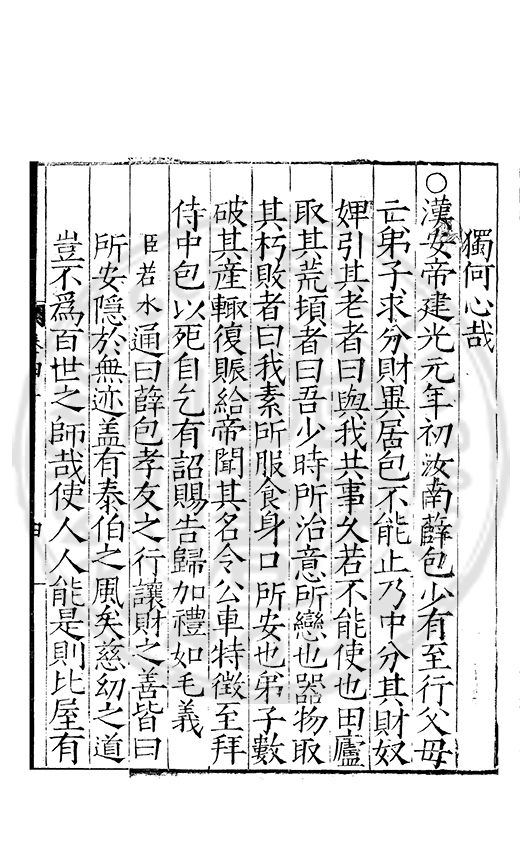 獨何心哉
○漢安帝建光元年初汝南薛包少有至行父母
亡弟子求分財異居包不能止乃中分其財奴
婢引其老者曰與我共事久若不能使也田廬
取其荒頃者曰吾少時所治意所戀也器物取
其朽敗者曰我素所服食身口所安也弟子數
破其産輙復賑給帝聞其名令公車特徵至拜
侍中包以死自乞有詔賜告歸加禮如毛義
臣若水通曰薛包孝友之行讓財之善皆曰
所安隱於無迹盖有泰伯之風矣慈幼之道
豈不爲百世之師哉使人人能是則比屋有